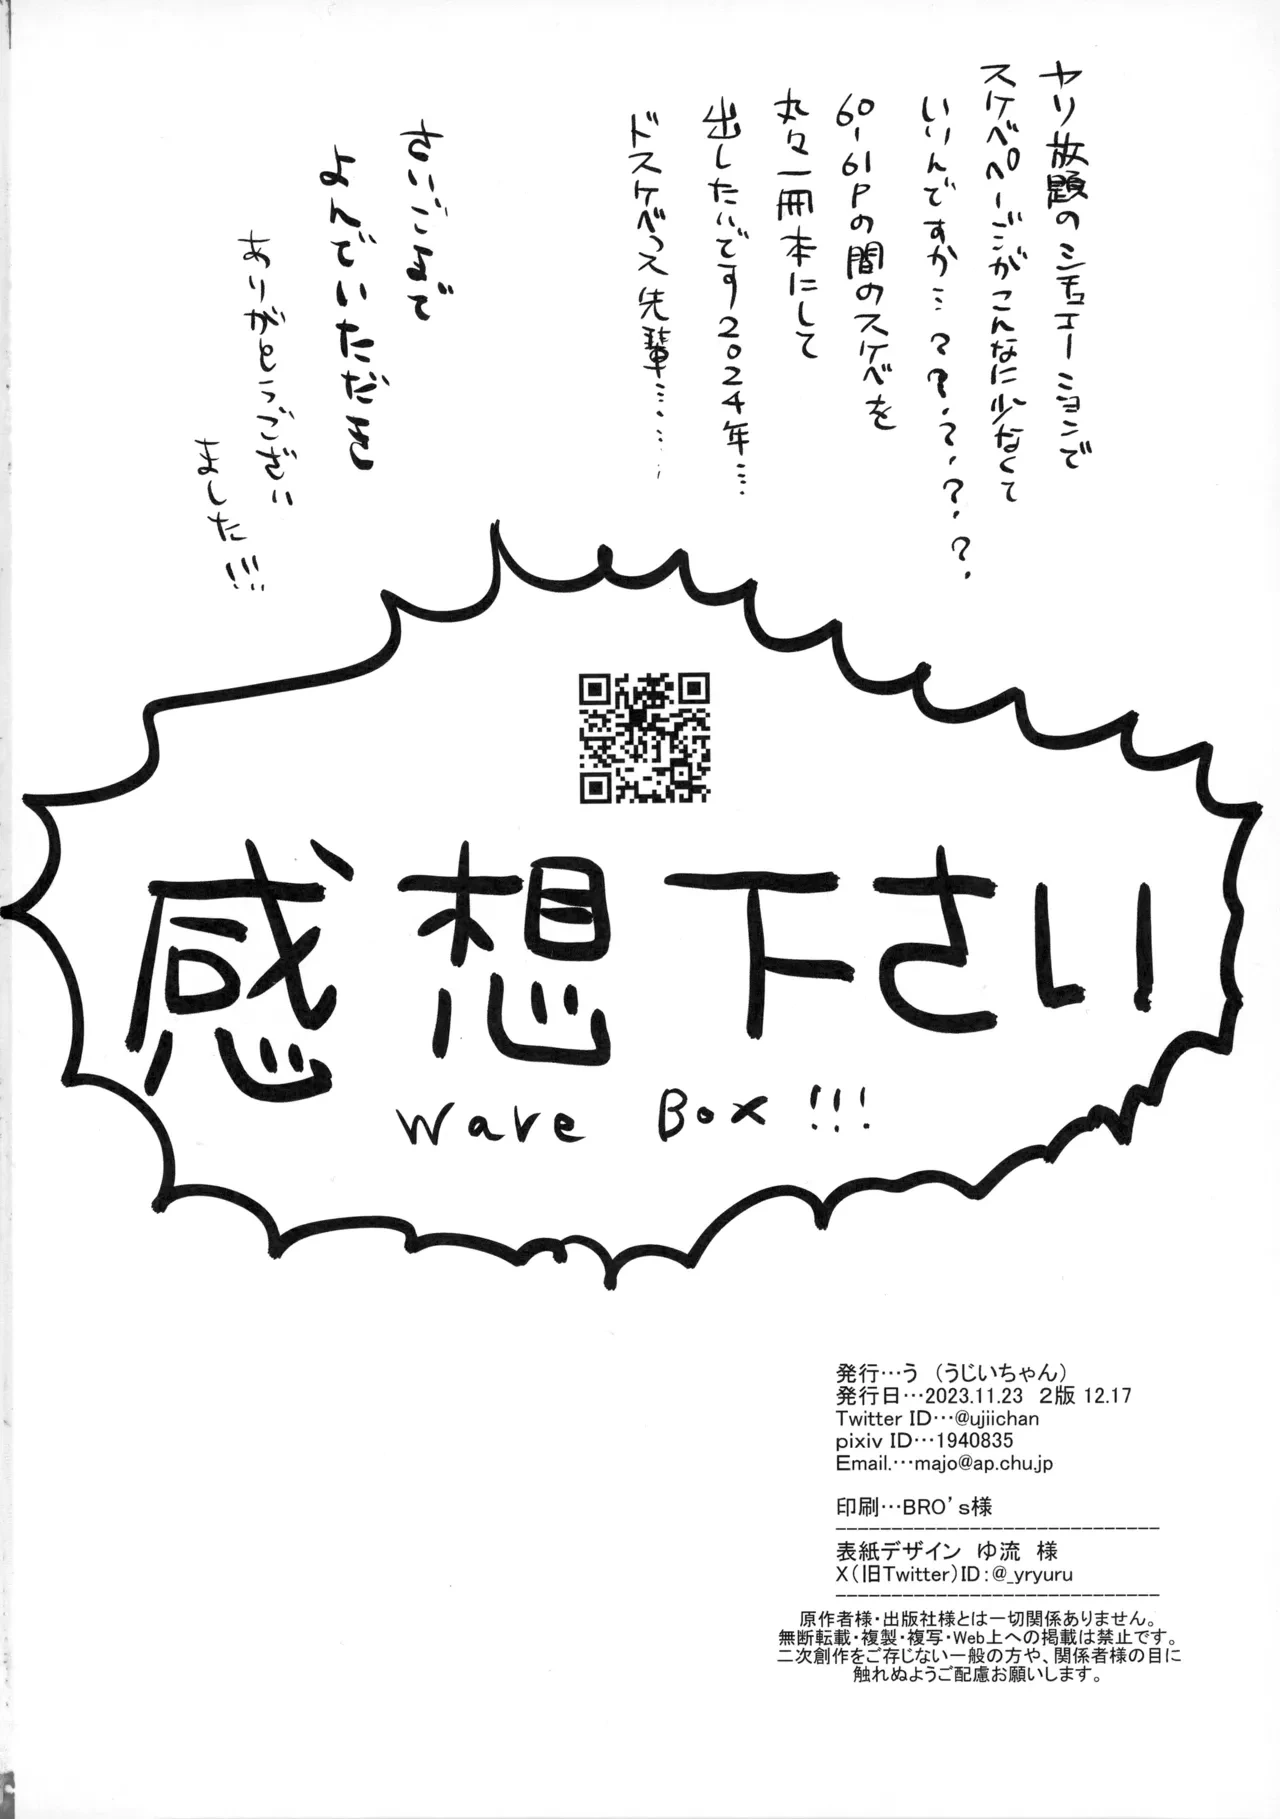 ヤリ放題のシチュエーションで
スケベページがこんなに少なくて
いいんですか…？？？？？？？
60-61Pの間のスケベを
丸々一冊本にして
出したいです2024年…
ドスケベっス先輩………
さいごまで
よんでいただき
ありがとうござい
ました!!!
感想下さい
Wave Box!!!
発行…う（うじいちゃん）
発行日…2023.11.23　２版 12.17
Twitter ID…@ujiichan
pixiv ID…1940835
Email.…majo@ap.chu.jp
印刷…BRO's様
表紙デザイン　ゆ流　様
X（旧Twitter）ID：@_yryuru
原作者様・出版社様とは一切関係ありません。
無断転載・複製・複写・Web上への掲載は禁止です。
二次創作をご存じない一般の方や、関係者様の目に
触れぬようご配慮お願いします。